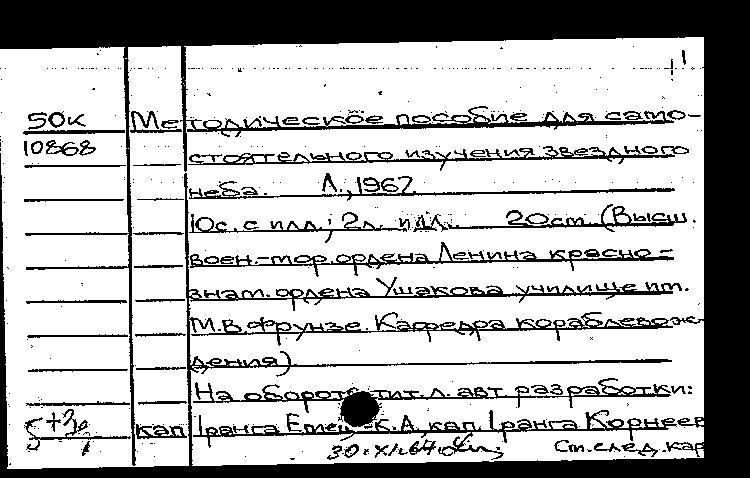 1
50к Методическое пособие для само-
10868 стоятельного изучения звездного
неба. Л., 1962
10с. с илл.; 2л. илл. 20см (Высш.
воен.-мор. ордена Ленина красно-
знам. ордена Ушакова училище им.
М.В. Фрунзе. Кафедра кораблевож-
дения)
На обороте тит. л. авт разработки:
кап Iранга Емец К.А, кап. Iранга Корнеев
30.XI.64
Cm. след. кар